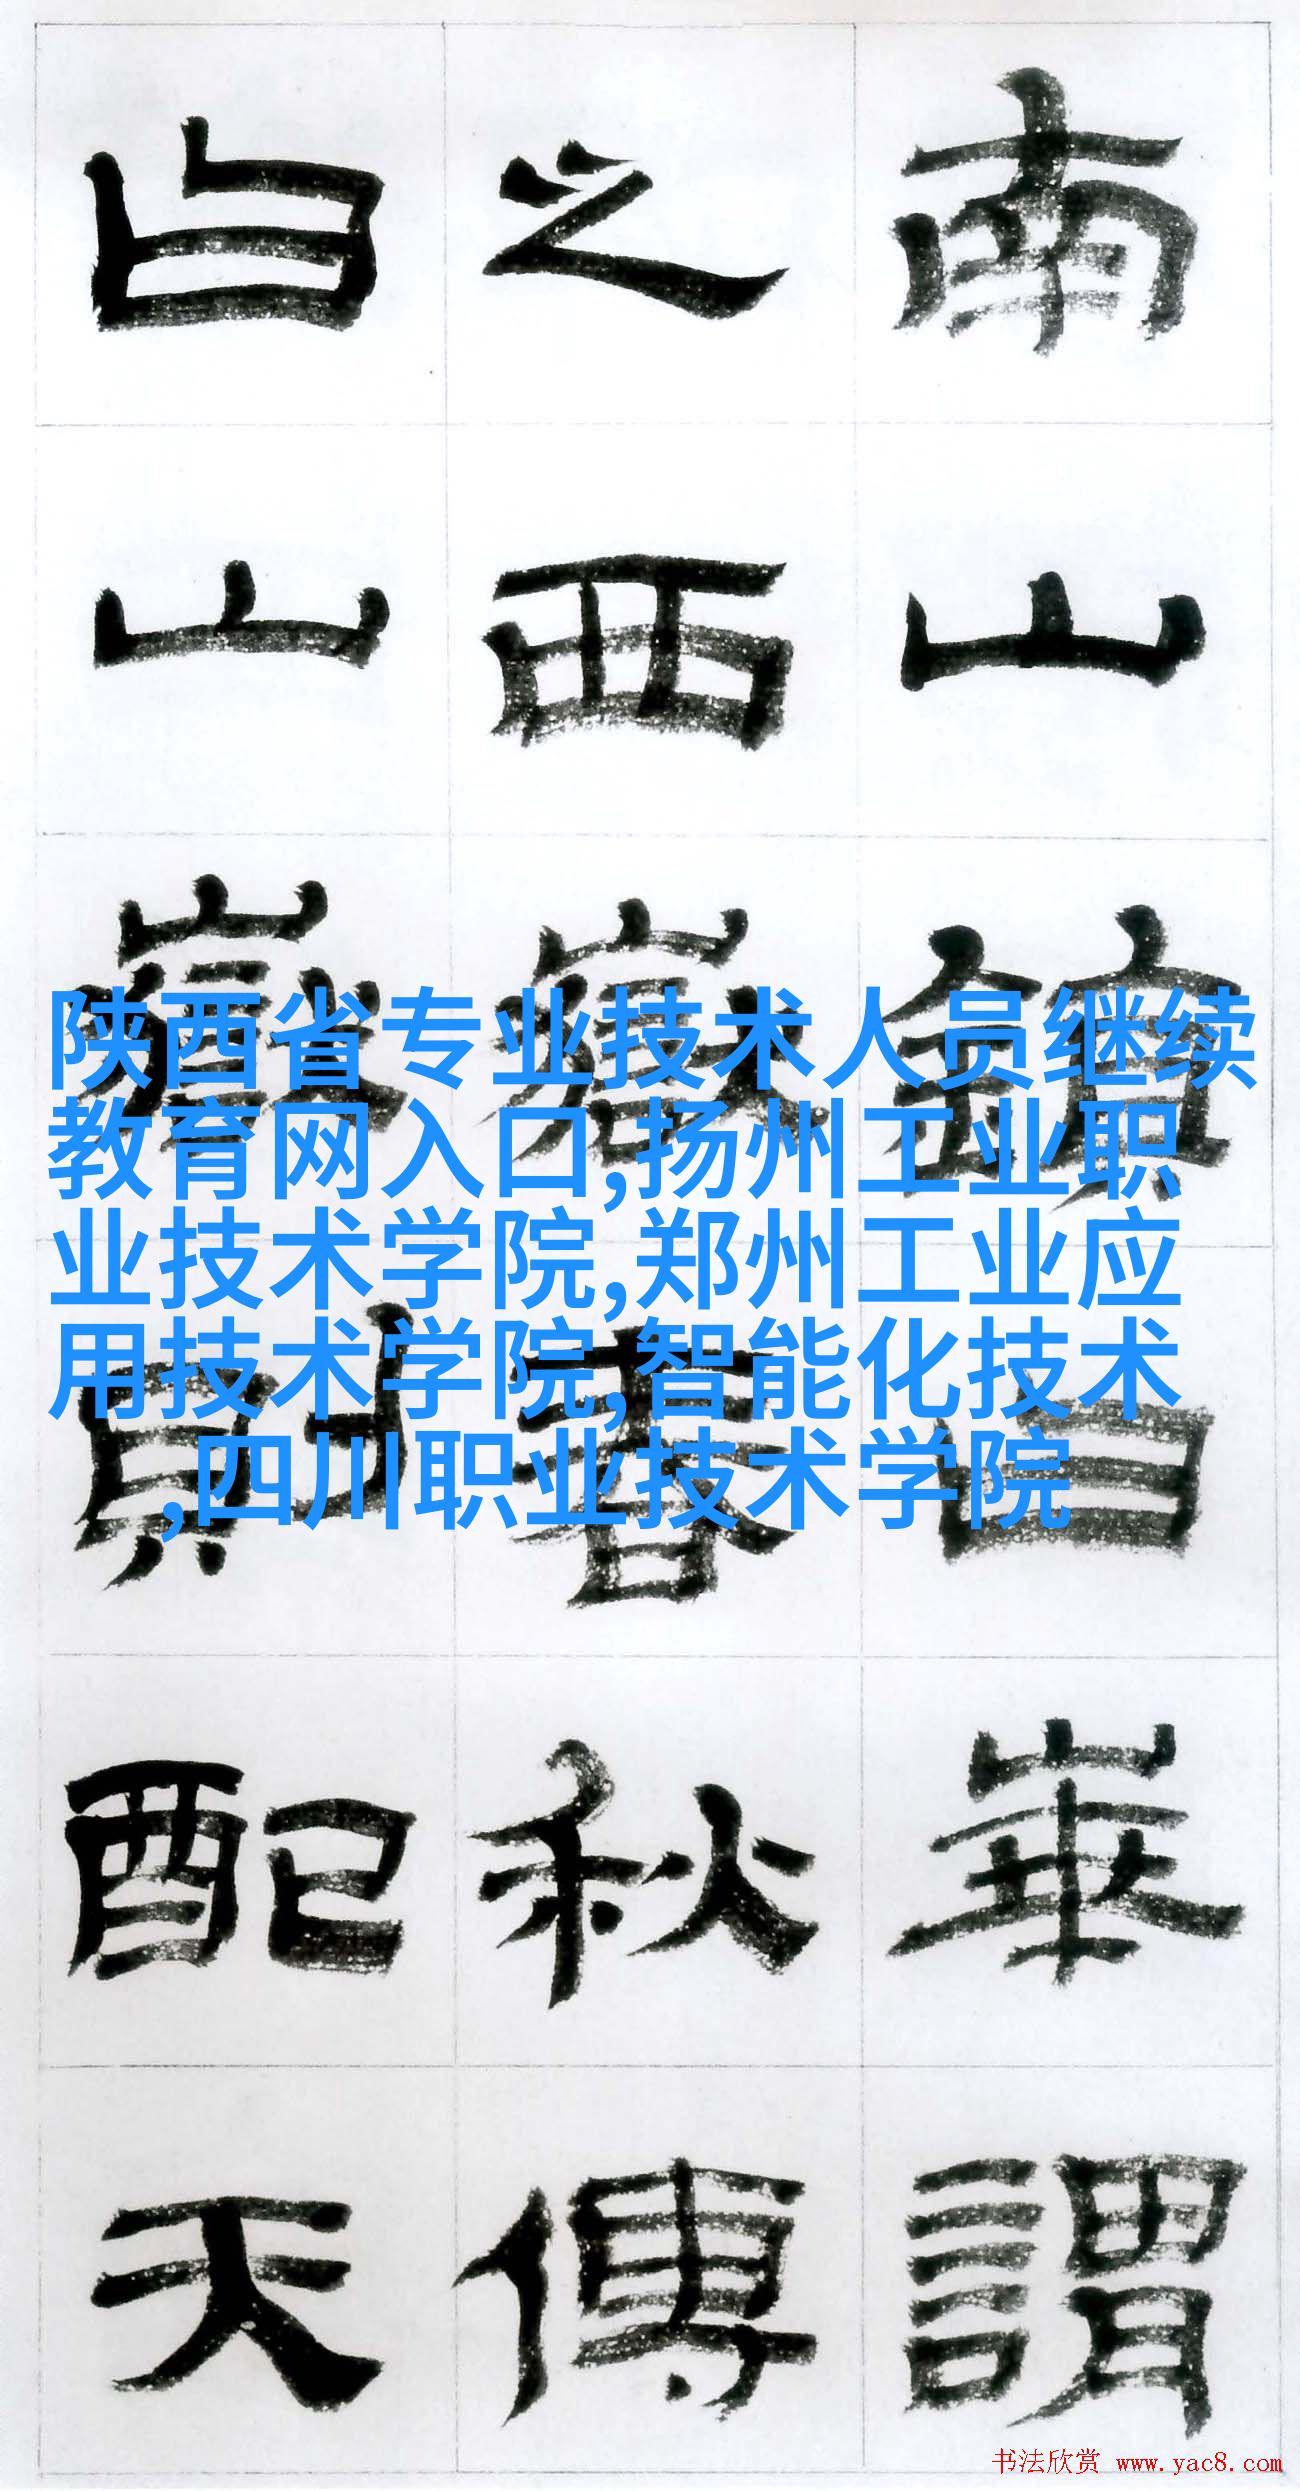 南山鎮曰華謂
之西嶽春秋傳
曰山嶽則配天
陕西省专业技术人员继续
教育网入口,扬州工业职
业技术学院,郑州工业应
用技术学院,智能化技术
,四川职业技术学院
书法欣赏 www.yac8.com